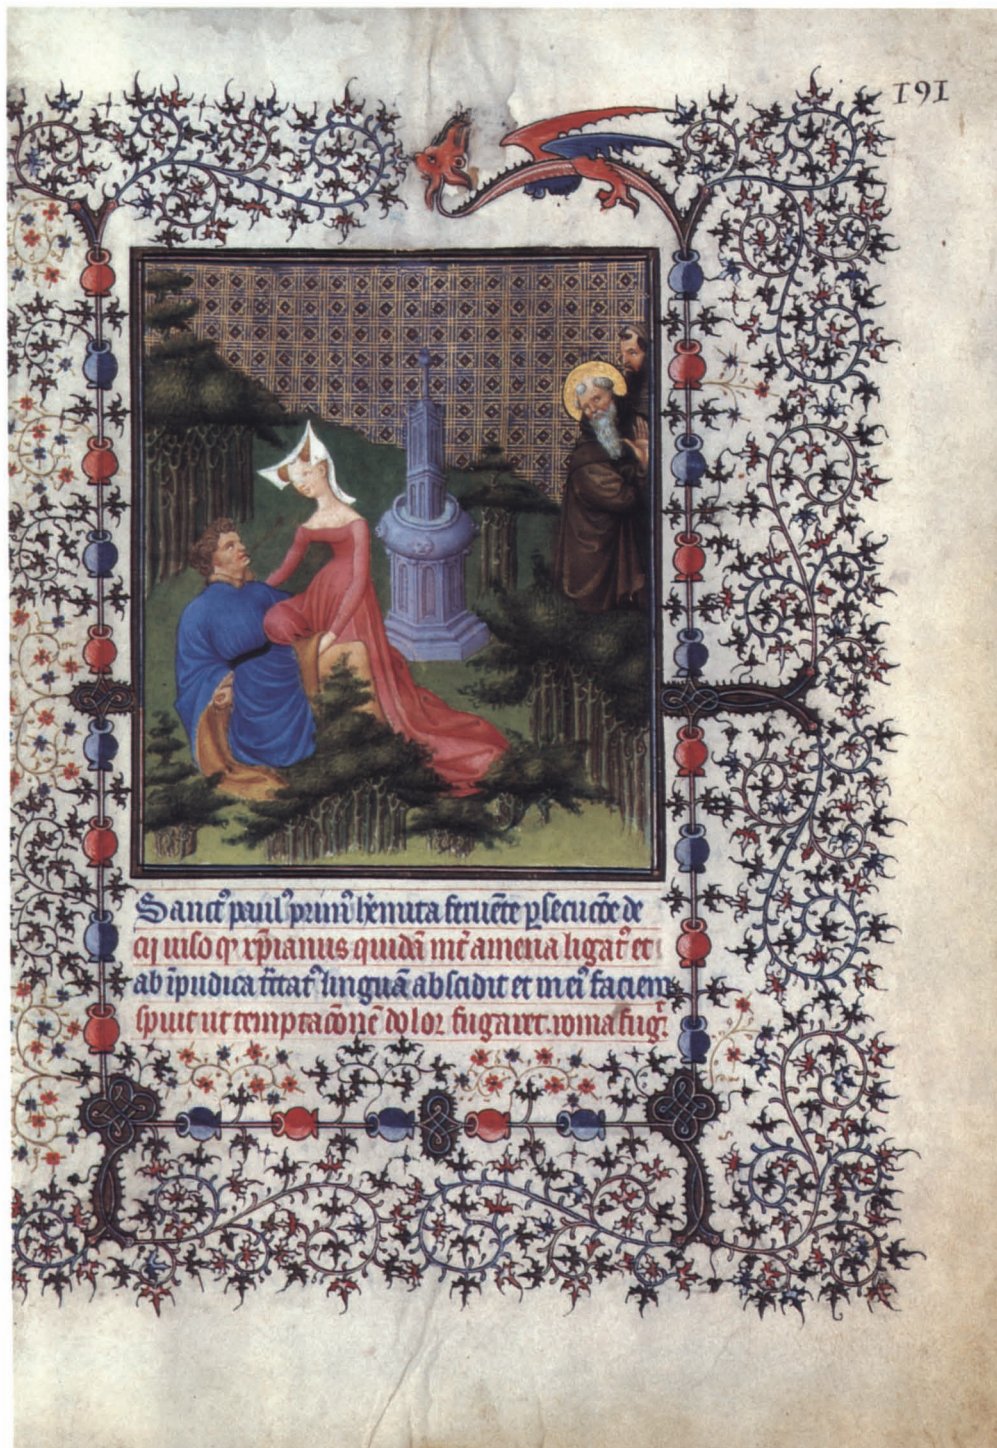 191
Sanct᷒ paul᷒ prim᷒ h̄emita feruēte ꝑsecucōe de
cij uiso ꝙ xp̄ianus quidā int̄ amena ligat᷒ et
ab īpudica t̄ctat᷒ linguā abscidit et mei᷒ faciem
spuit ut temptacōnē dolor fugaret. roma fugit